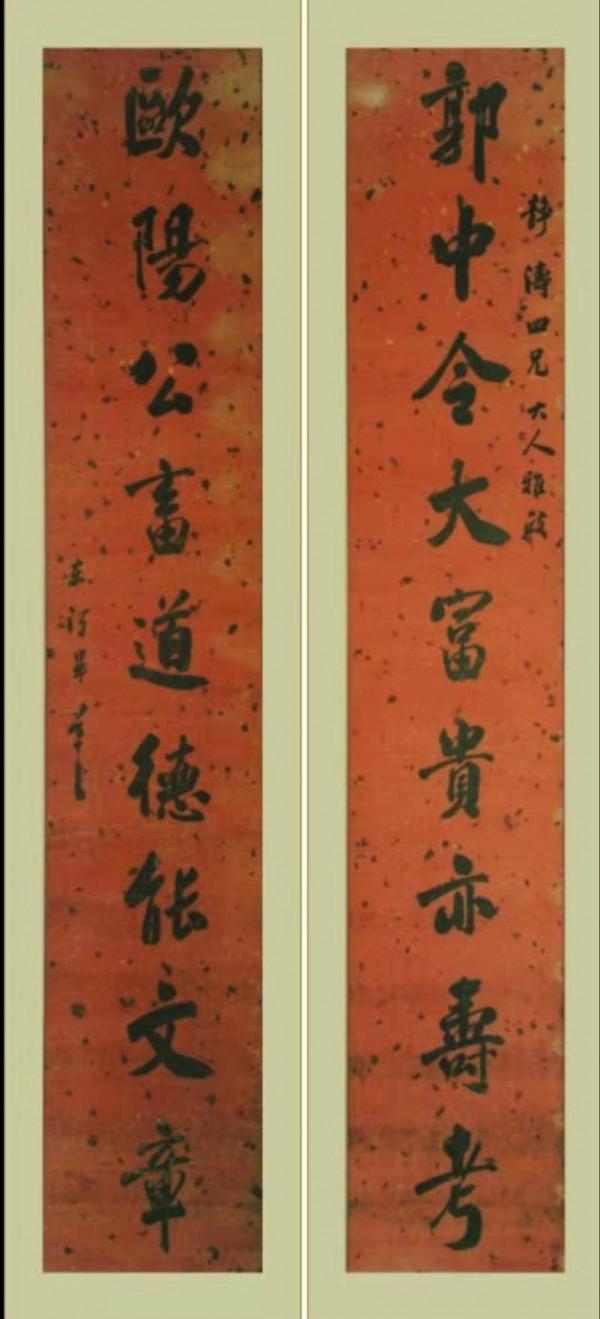 郭中令大富貴亦壽考
靜濤四兄大人雅
歐陽公畜道德能文章